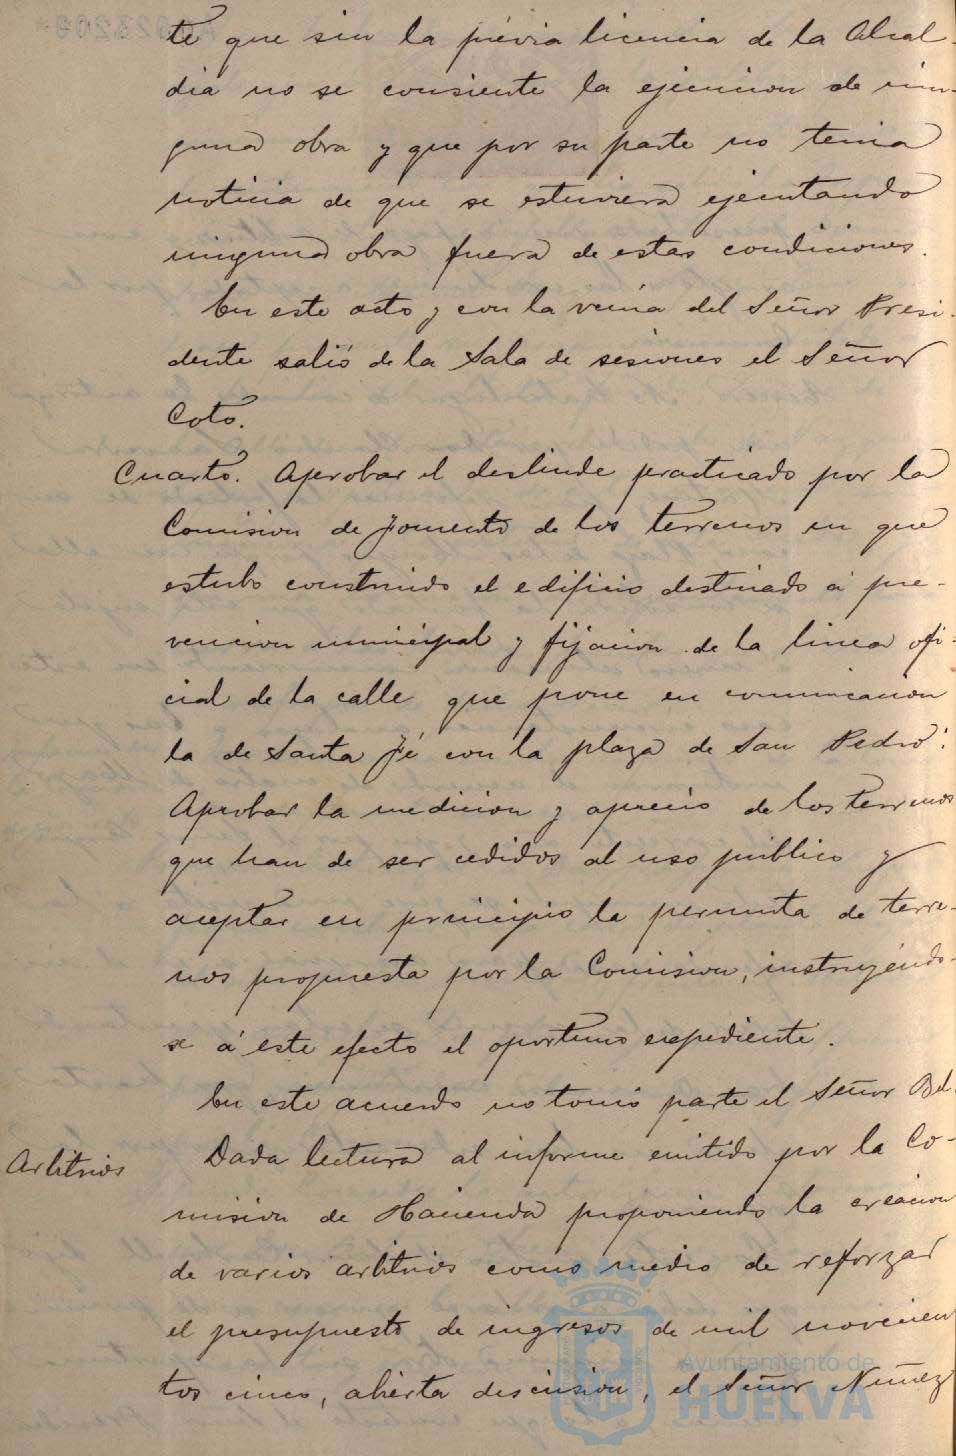 te que sin la prévia licencia de la Alcal-
dia no se consiente la ejecucion de nin-
guna obra y que por su parte no tenia
noticia de que se estuviera ejecutando
ninguna obra fuera de estas condiciones.
En este acto y con la venia del Señor Presi-
dente salió de la Sala de sesiones el Señor
Coto.
Cuarto. Aprobar el deslinde practicado por la
Comision de Fomento de los terrenos en que
estubo construido el edificio destinado á pre-
vencion municipal y fijacion de la linea ofi-
cial de la calle que pone en comunicacion
la de Santa Fé con la plaza de San Pedro:
Aprobar la medicion y aprecio de los terrenos
que han de ser cedidos al uso público y
aceptar en principio la permuta de terre-
nos propuesta por la Comision, instruyéndo-
se á este efecto el oportuno expediente.
En este acuerdo no tomó parte el Señor Bel.
Arbitrios
Dada lectura al informe emitido por la Co-
mision de Hacienda proponiendo la creacion
de varios arbitrios como medio de reforzar
el presupuesto de ingresos de mil novecien
tos cinco, abierta discusion, el Señor Nuñez
Ayuntamiento de
HUELVA